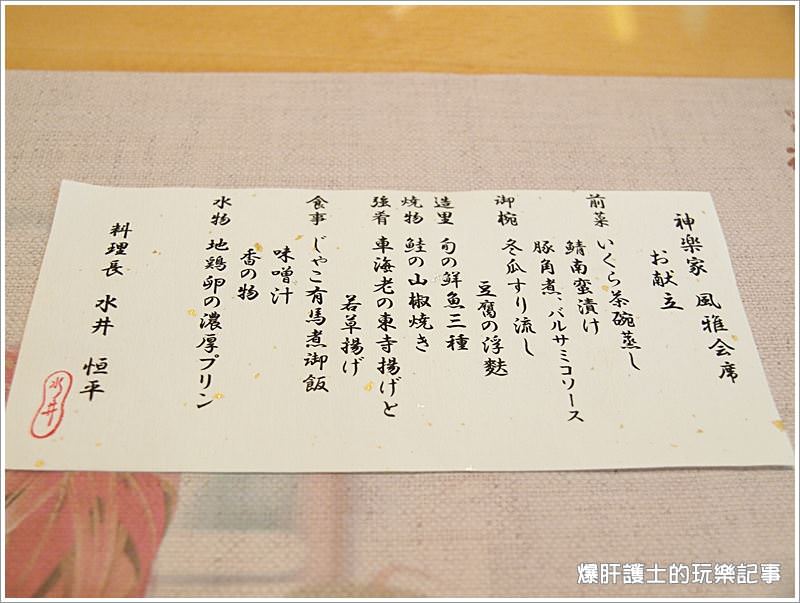 神楽家 風雅会席
お献立
前菜 いくら茶碗蒸し
鯖南蛮漬け
豚角煮、バルサミコソース
御椀 冬瓜すり流し
豆腐の浮麩
造里 旬の鮮魚三種
焼物 鮭の山椒焼き
強肴 車海老の東寺揚げと
若草揚げ
食事 じゃこ有馬煮御飯
味噌汁
香の物
水物 地鶏卵の濃厚プリン
料理長 水井 恒平
水井
爆肝護士的玩樂記事